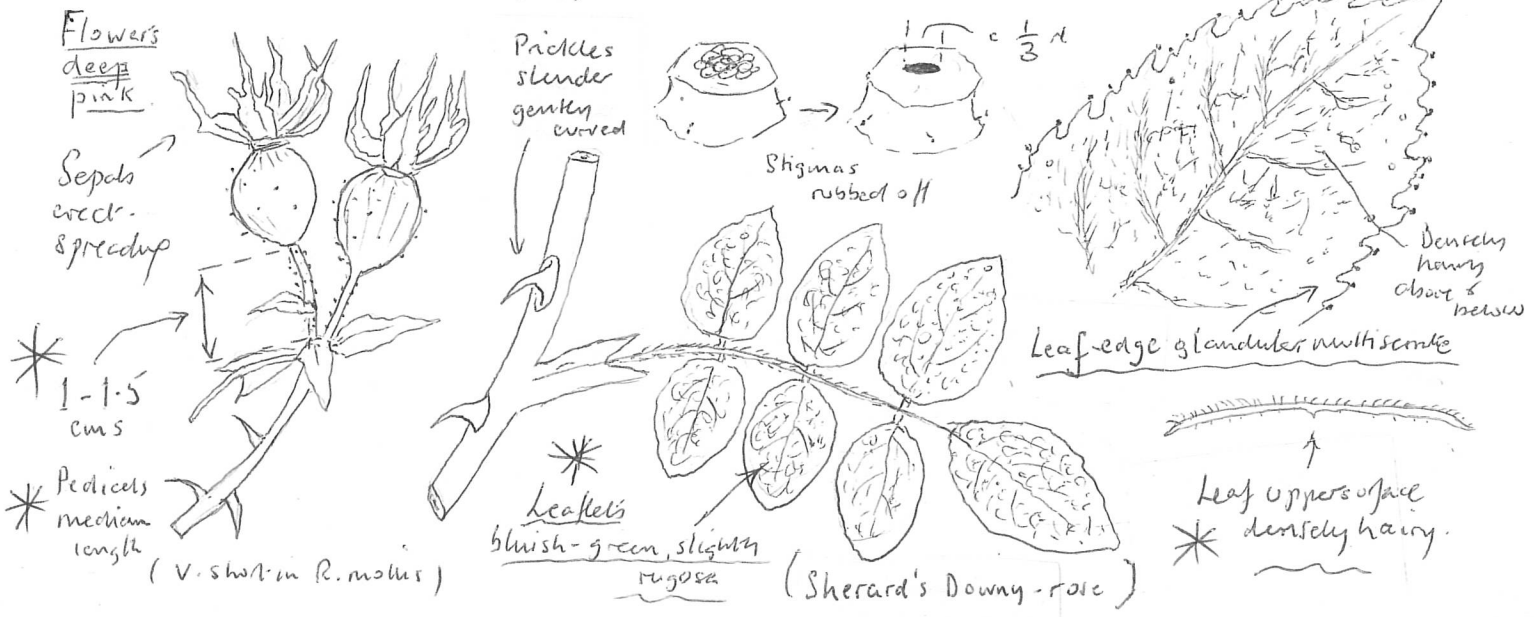 Flowers
deep
pink
Sepals
erect-
spreading
1-1.5
cms
Pedicels
medium
length
(V. short in R. mollis)
Prickles
slender
gently
curved
c 1/3 d
Stigmas
rubbed off
Leaflets
bluish-green, slightly
rugose
(Sherard's Downy-rose)
Densely
hairy
above &
below
Leaf-edge glandular multiserrate
Leaf uppersurface
densely hairy.